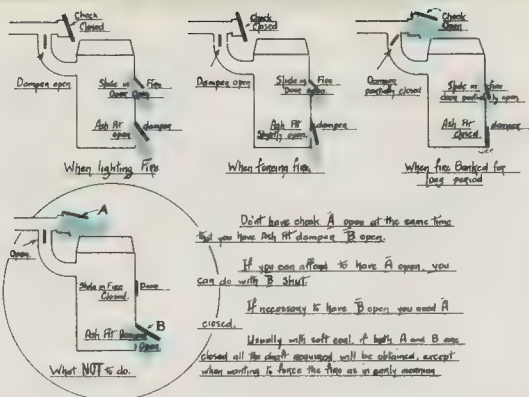 Check
Closed
Damper open
Slide in Fire
Door Open
Ash Pit damper
open
When lighting Fire
Check
Closed
Damper open
Slide in Fire
Door open
Ash Pit damper
Slightly open
When forcing fire.
Check
Open
Damper
partially closed
Slide in fire
door partially open
Ash Pit damper
closed
When fire Banked for
long period
A
Open
Slide in Fire Door
Closed.
B
Ash Pit Damper
Open
What NOT to do.
Don't have check A open at the same time
that you have Ash Pit damper B open.
If you can afford to have A open, you
can do with B shut.
If necessary to have B open you need A
closed.
Usually with soft coal, if both A and B are
closed all the draft required will be obtained, except
when wanting to force the fire as in early morning